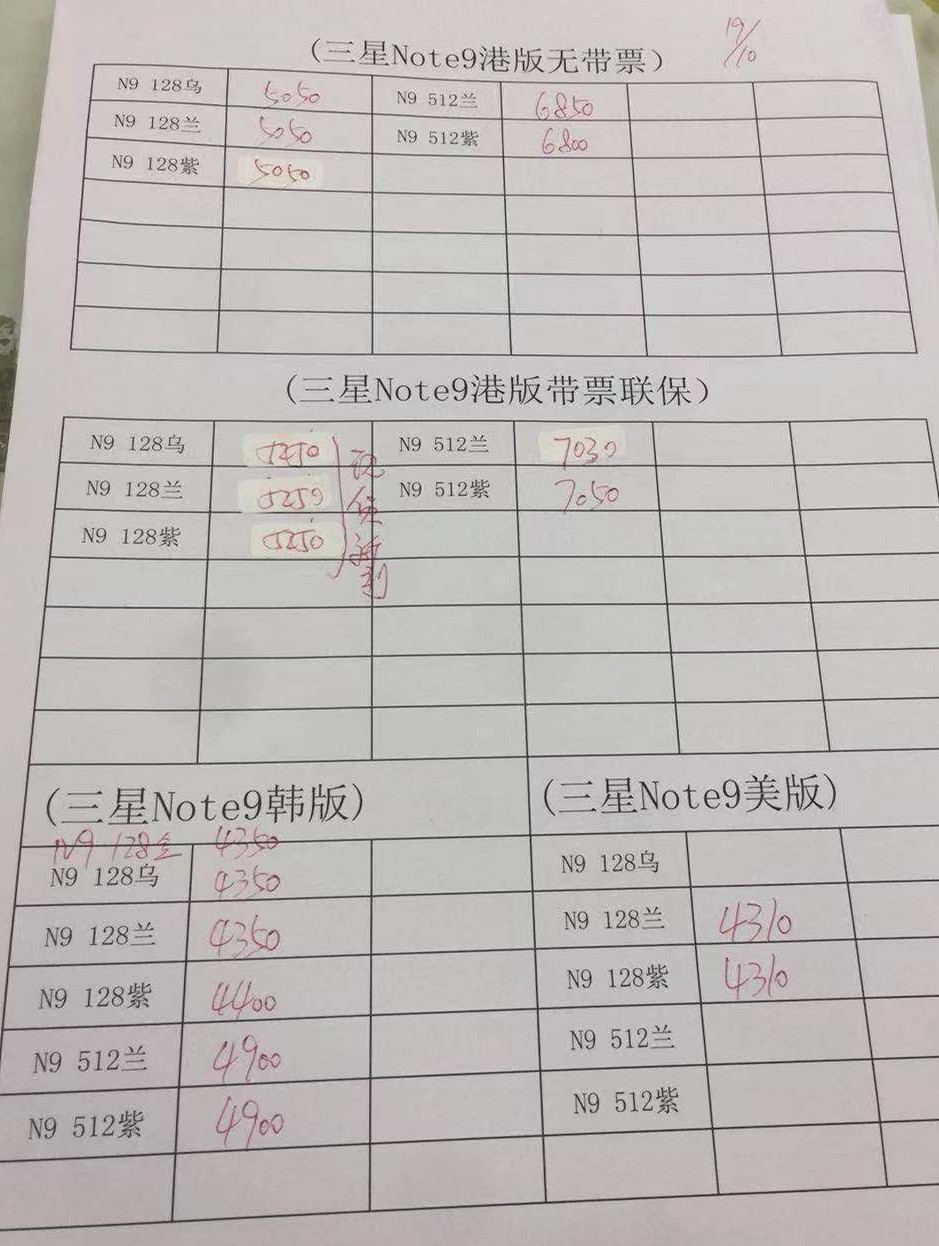 19/10
(三星Note9港版无带票)
N9 128乌 5050 N9 512兰 6850
N9 128兰 5050 N9 512紫 6800
N9 128紫 5050
(三星Note9港版带票联保)
N9 128乌 5250 N9 512兰 7030
N9 128兰 5250 N9 512紫 7050
N9 128紫 5250
现货新到
(三星Note9韩版) (三星Note9美版)
N9 128金 4350
N9 128乌 4350 N9 128乌
N9 128兰 4350 N9 128兰 4310
N9 128紫 4400 N9 128紫 4310
N9 512兰 4900 N9 512兰
N9 512紫 4900 N9 512紫